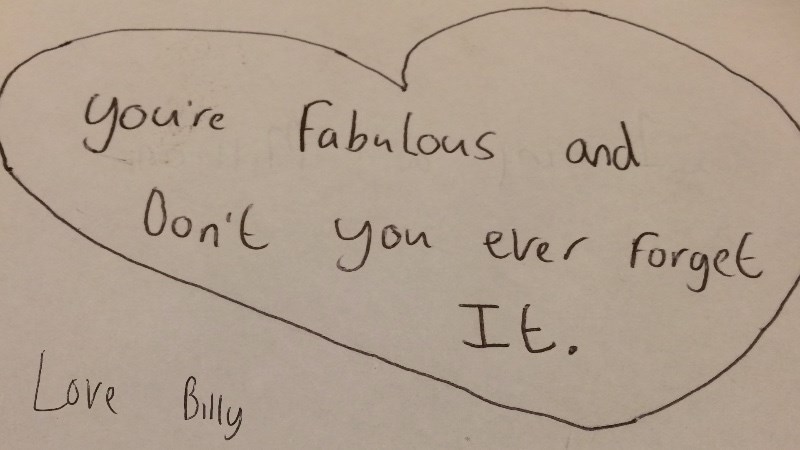 you're Fabulous and
Don't you ever forget
It.
Love Billy